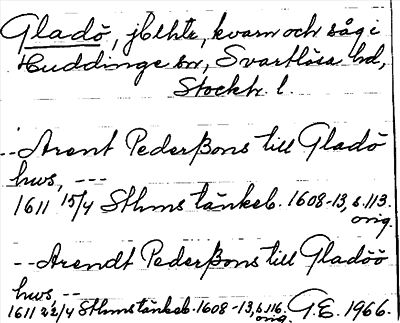 Gladö, jblhtr, kvarn och såg i
Huddinge sn, Svartlösa hd,
Stockh. l.
-- Arent Pederßons till Gladö
hws, ---
1611 15/4 Sthms tänkeb. 1608-13, s. 113.
orig.
-- Arendt Pederßons till Gladöö
hws, --
1611 22/4 Sthms tänkeb. 1608-13, s. 116. G.E. 1966.
orig.